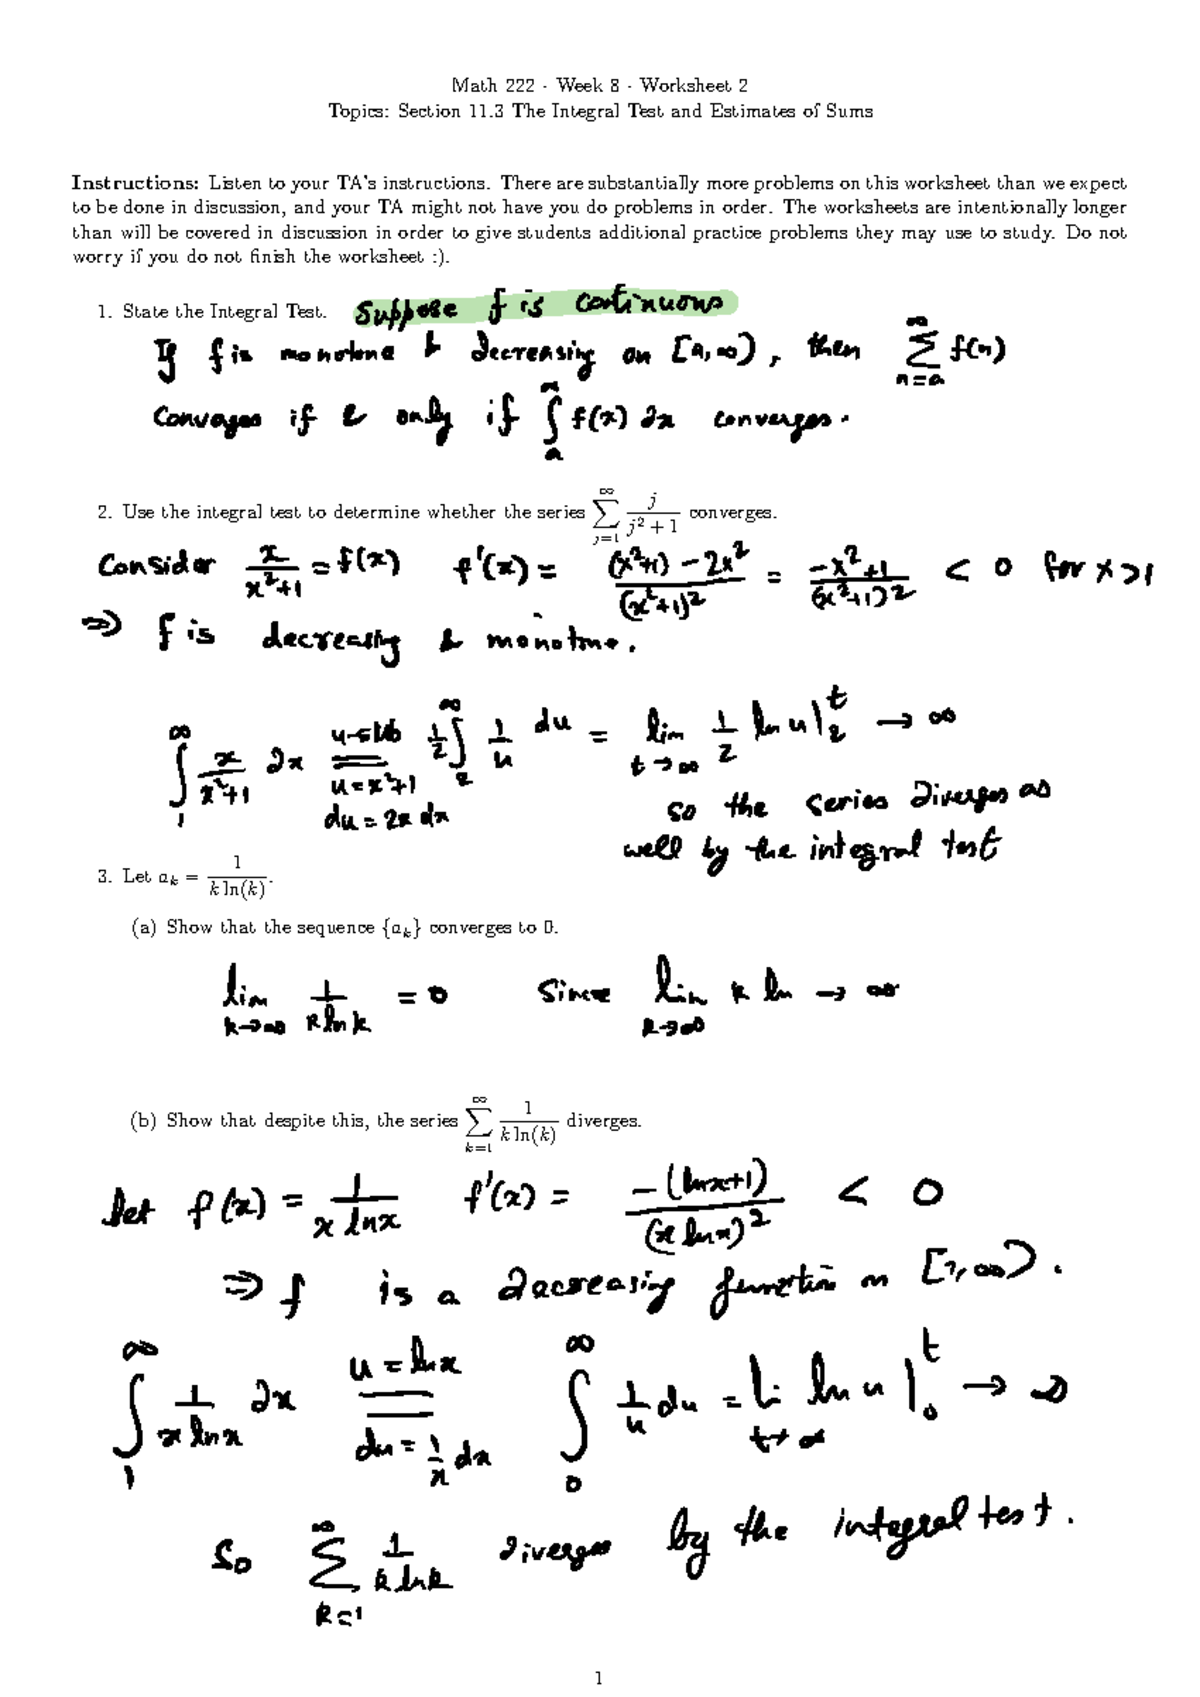 Math 222 - Week 8 - Worksheet 2
Topics: Section 11.3 The Integral Test and Estimates of Sums
Instructions: Listen to your TA's instructions. There are substantially more problems on this worksheet than we expect
to be done in discussion, and your TA might not have you do problems in order. The worksheets are intentionally longer
than will be covered in discussion in order to give students additional practice problems they may use to study. Do not
worry if you do not finish the worksheet :).
1. State the Integral Test. Suppose f is continuous
If f is monotone & decreasing on [a,∞), then ∑_{n=a}^{∞} f(n)
Converges if & only if ∫_a^∞ f(x) dx converges.
2. Use the integral test to determine whether the series ∑_{j=1}^{∞} j/(j²+1) converges.
Consider x/(x²+1) = f(x) f'(x) = ((x²+1) - 2x²)/(x²+1)² = (-x²+1)/(x²+1)² < 0 for x>1
⇒ f is decreasing & monotone.
∫_1^∞ x/(x²+1) dx = u-sub u = x²+1 du = 2x dx 1/2 ∫_2^∞ 1/u du = lim_{t→∞} 1/2 ln u |_2^t → ∞
so the series diverges as
well by the integral test
3. Let a_k = 1/(k ln(k)).
(a) Show that the sequence {a_k} converges to 0.
lim_{k→∞} 1/(k ln k) = 0 Since lim_{k→∞} k ln → ∞
(b) Show that despite this, the series ∑_{k=1}^{∞} 1/(k ln(k)) diverges.
let f(x) = 1/(x ln x) f'(x) = -(ln x+1)/(x ln x)² < 0
⇒ f is a decreasing function on [1,∞).
∫_1^∞ 1/(x ln x) dx = u = ln x du = 1/x dx ∫_0^∞ 1/u du = li_{t→∞} ln u |_0^t → ∞
So ∑_{k=1}^{∞} 1/(k ln k) diverges by the integral test.
1